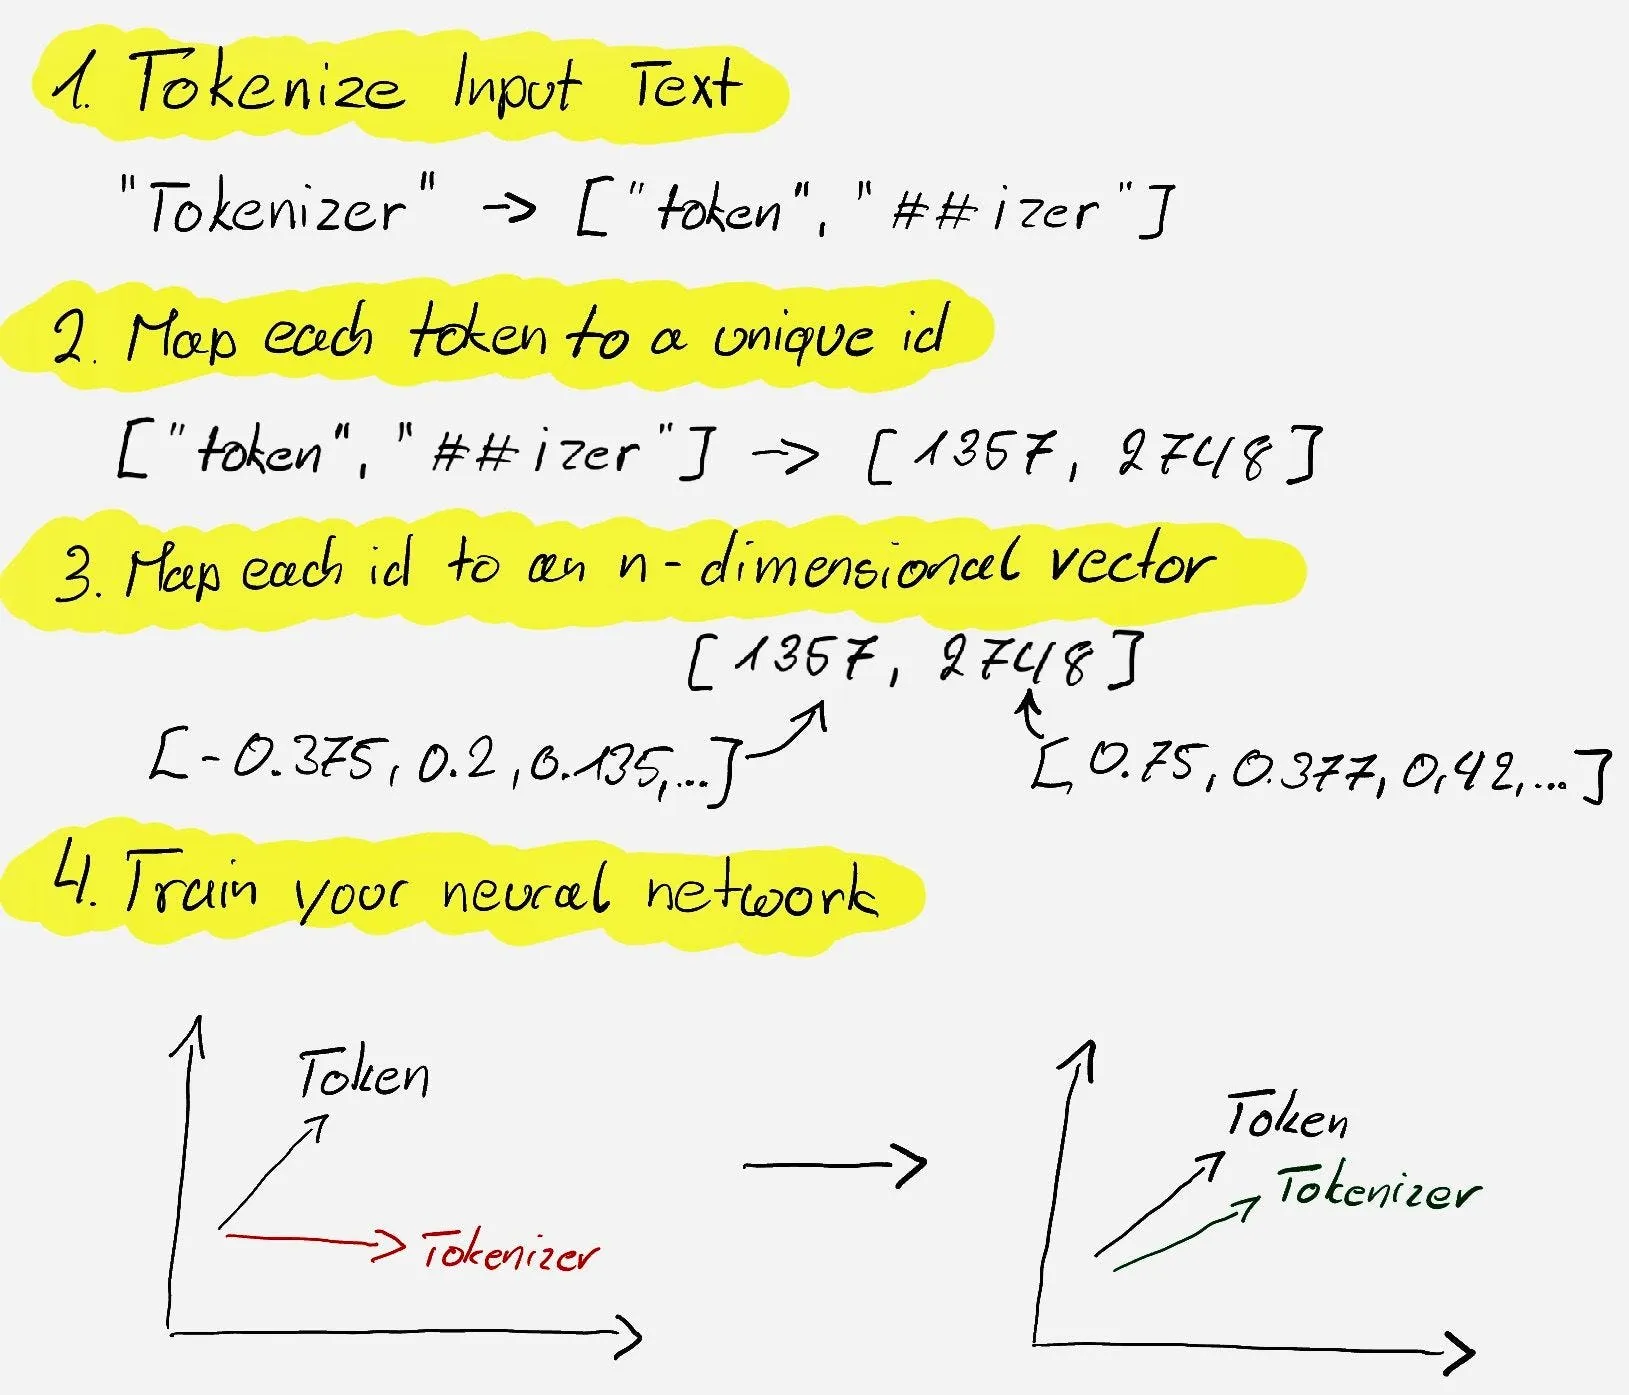 1. Tokenize Input Text
"Tokenizer" -> ["token", "##izer"]
2. Map each token to a unique id
["token", "##izer"] -> [1357, 2748]
3. Map each id to an n-dimensional vector
[1357, 2748]
[-0.375, 0.2, 0.135,...] [0.75, 0.377, 0,42,...]
4. Train your neural network
Token
Tokenizer
Token
Tokenizer